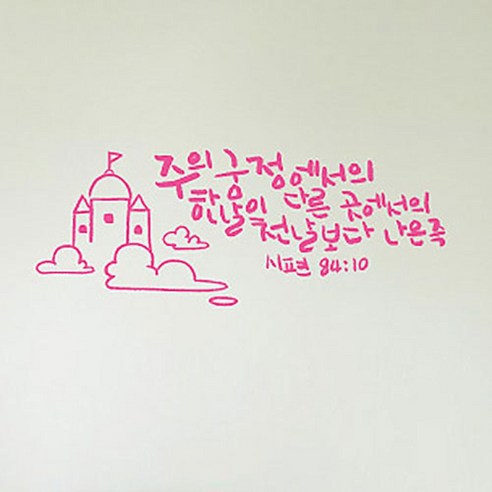 주의 궁정에서의
한날이 다른 곳에서의
천날보다 나은즉
시편 84:10